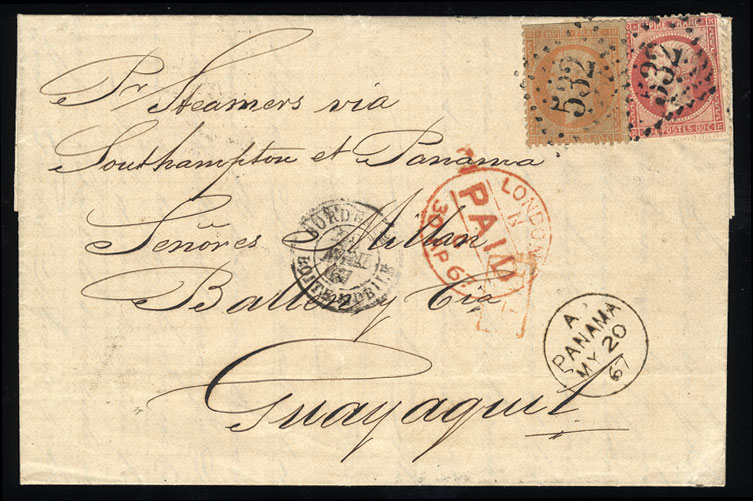 EMPIRE FRANC
532
532
POSTES 80 C
Pr Steamers via
Southampton et Panama
Señores Millan
Ballen y Cia
Guayaquil
LONDON
N
PAID
30 AP 67
BORDE
67
BOITE MOBILE
A
PANAMA
MY 20
67